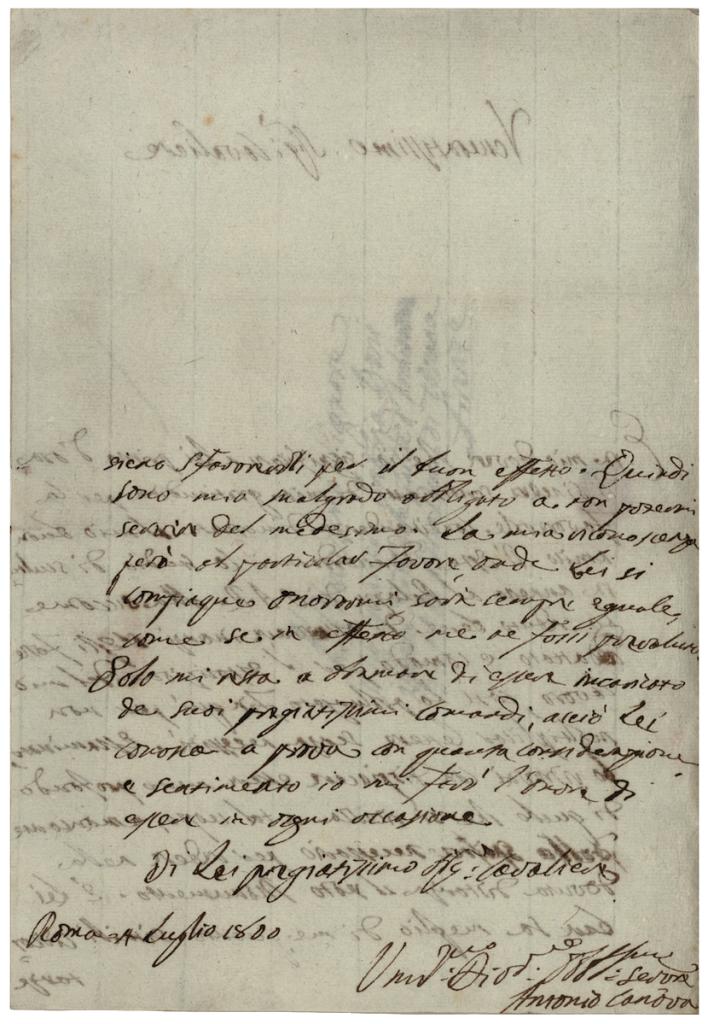 sieno favorevoli per il buon effetto. Quindi
sono mio malgrado obbligato a non potermi
servir del medesimo. La mia riconoscenza
però al particolar favore, onde Lei si
compiaque onorarmi, sarà sempre eguale,
come se in effetto me ne fossi prevaluto.
Solo mi resta a bramare di esser incaricato
de suoi pregiatissimi comandi, acciò Lei
conosca a prova con quanta considerazione
e sentimento io mi farò l'onore di
esser in ogni occasione
Di Lei pregiatissimo Sig: Cavaliere
Roma 4 Luglio 1800
Servore
Antonio Canova